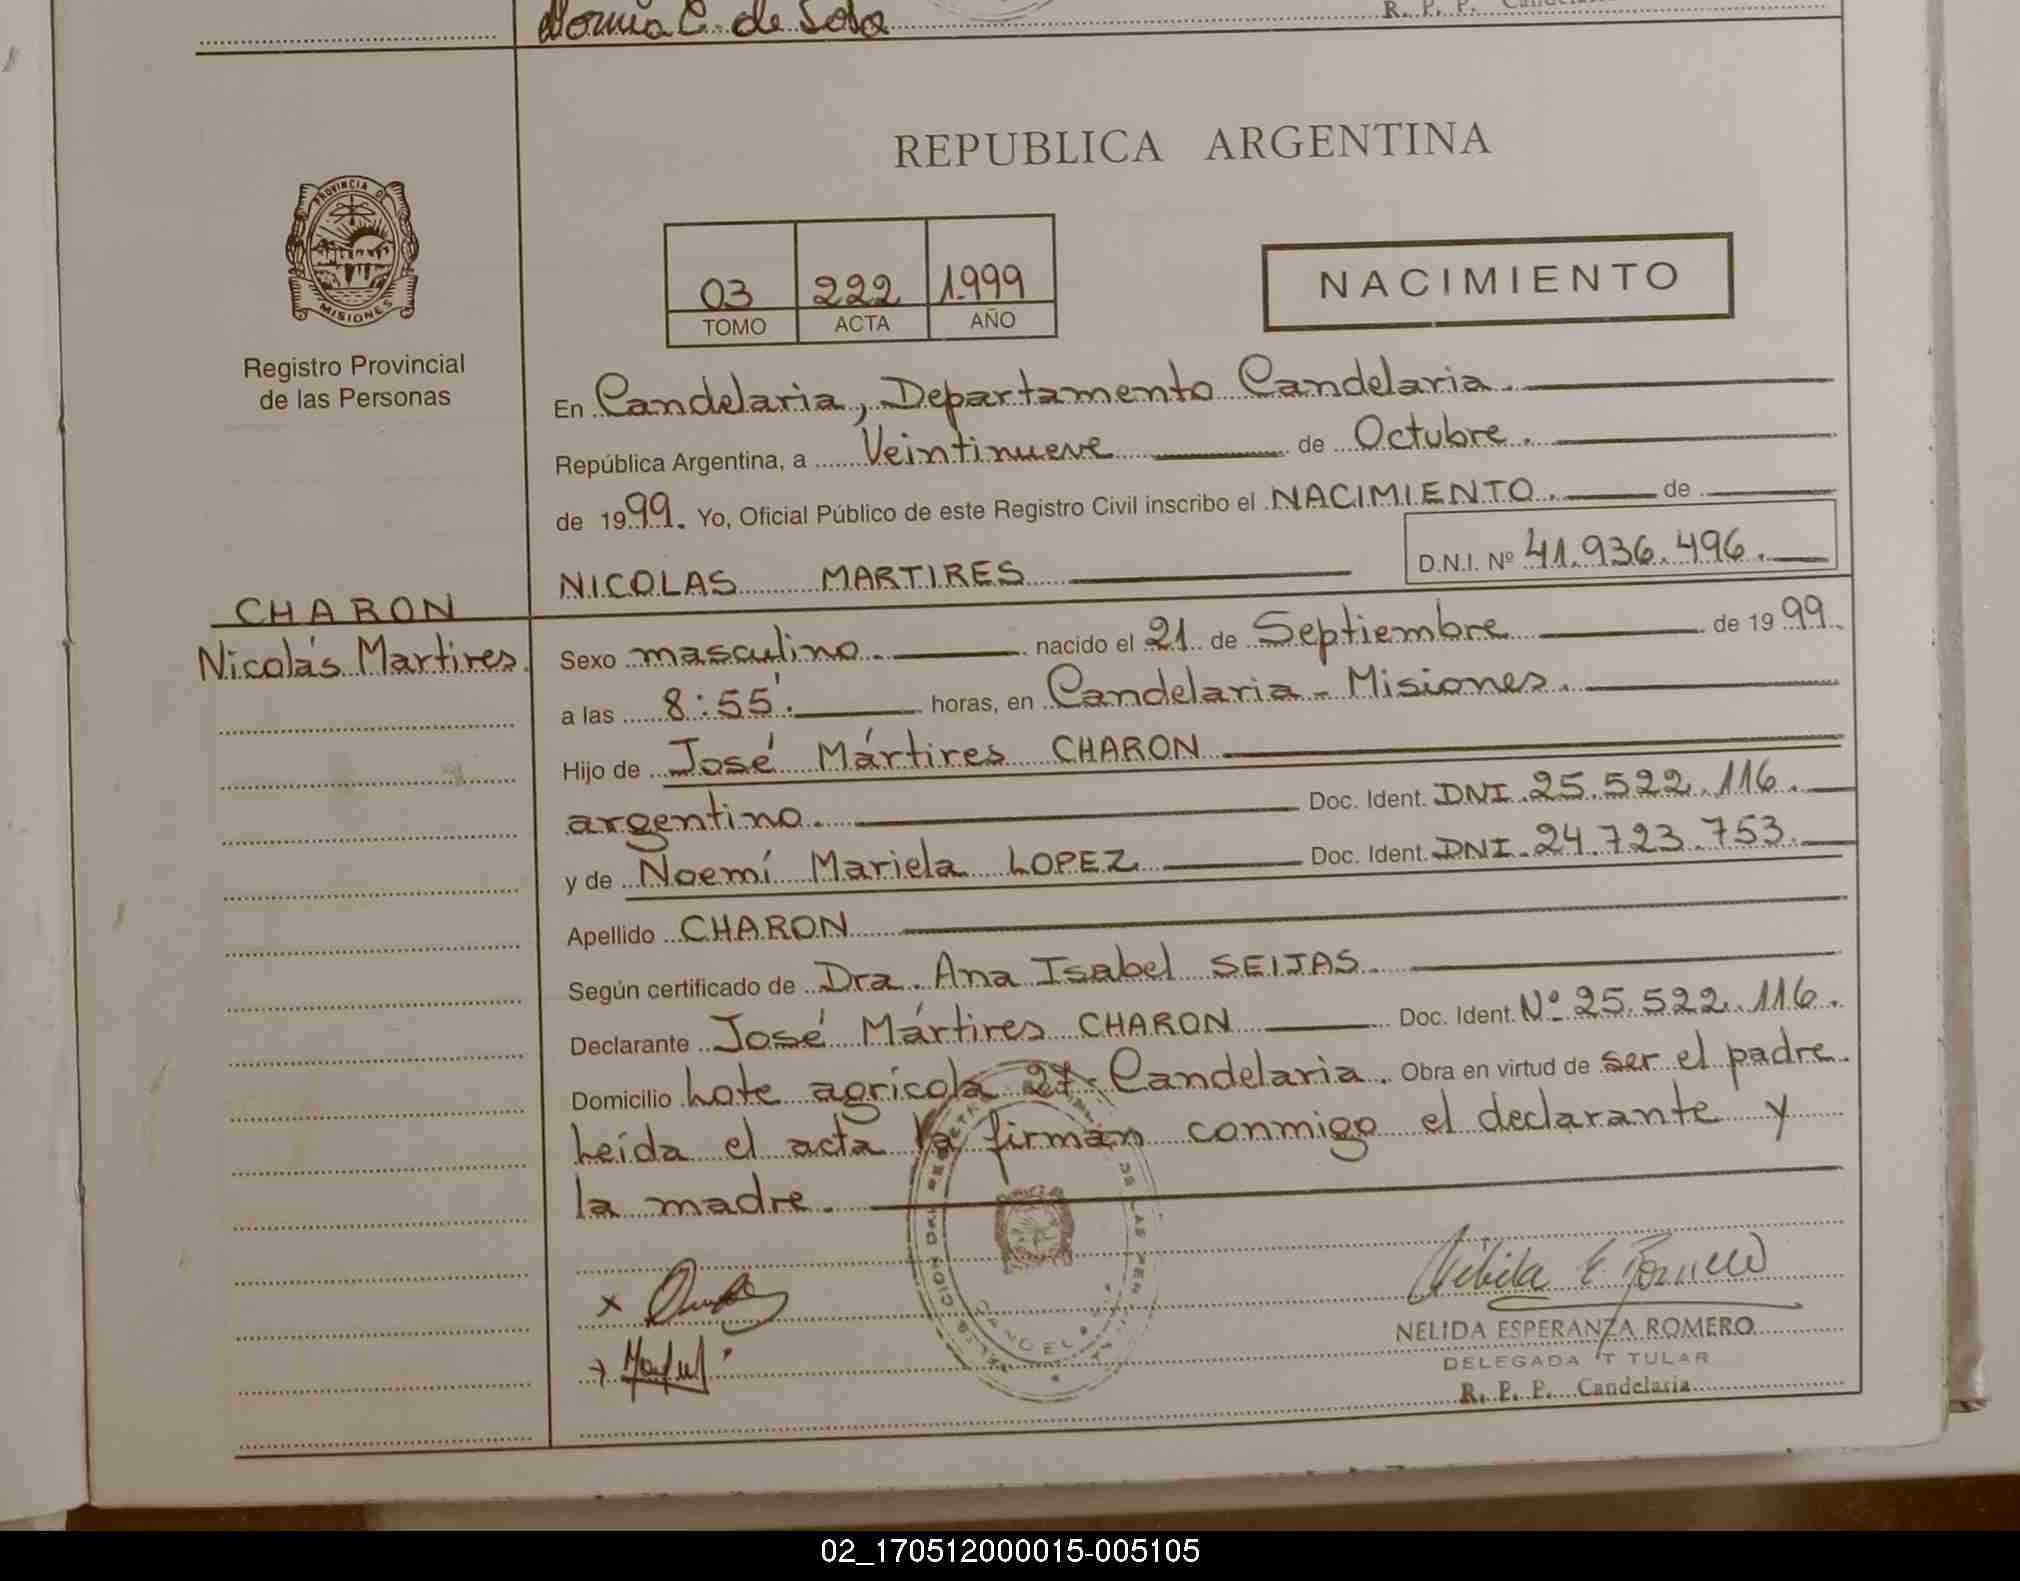 Norma C. de Soto
R. P. P.
REPUBLICA ARGENTINA
PROVINCIA DE
MISIONES
Registro Provincial
de las Personas
03 222 1.999
TOMO ACTA AÑO
NACIMIENTO
En Candelaria, Departamento Candelaria.
República Argentina, a Veintinueve de Octubre.
de 1999. Yo, Oficial Público de este Registro Civil inscribo el NACIMIENTO. de
NICOLAS MARTIRES D.N.I. Nº 41.936.496.
CHARON
Nicolás Martires.
Sexo masculino. nacido el 21 de Septiembre de 1999.
a las 8:55'. horas, en Candelaria - Misiones.
Hijo de José Mártires CHARON
argentino. Doc. Ident. DNI. 25.522.116.
y de Noemí Mariela LOPEZ Doc. Ident. DNI. 24.723.753.
Apellido CHARON
Según certificado de Dra. Ana Isabel SEIJAS.
Declarante José Mártires CHARON Doc. Ident. Nº 25.522.116.
Domicilio Lote agrícola 27. Candelaria. Obra en virtud de ser el padre.
Leída el acta la firman conmigo el declarante y
la madre.
x
NELIDA ESPERANZA ROMERO
DELEGADA T TULAR
R. P. P. Candelaria
02_170512000015-005105